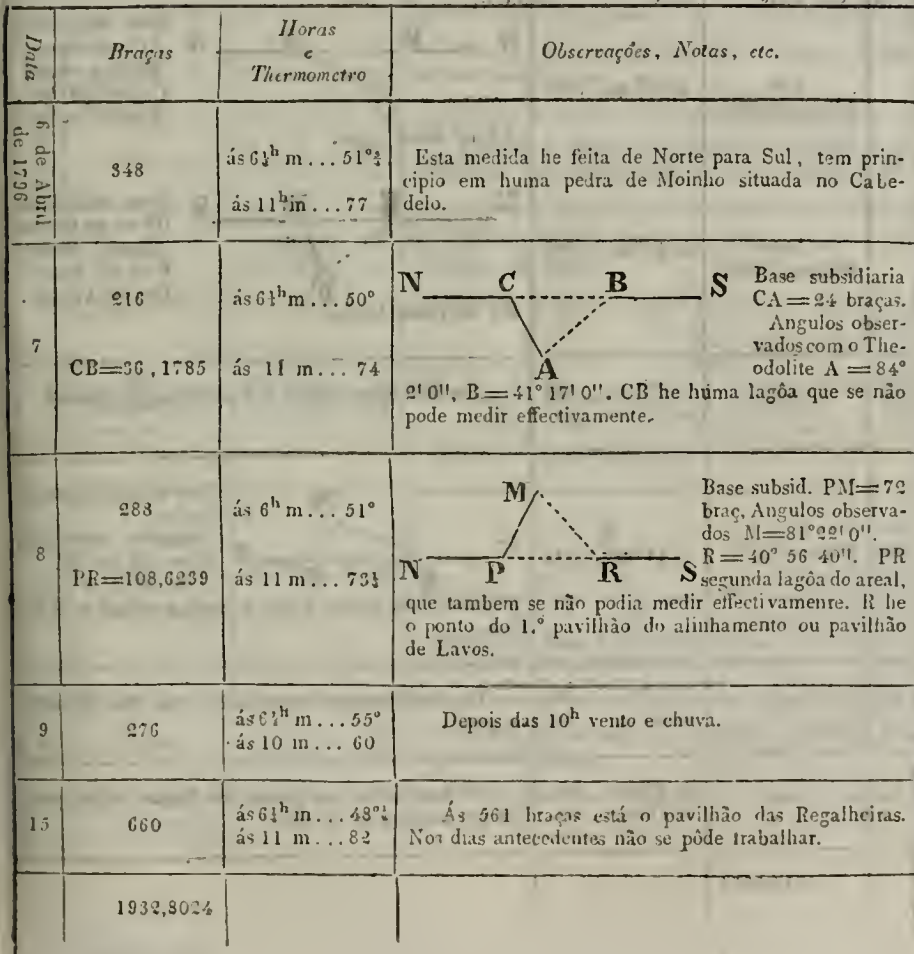 Data
Braças
Horas
e
Thermometro
Observações, Notas, etc.
6 de Abril
de 1796
348
ás 6½ʰ m... 51°¾
ás 11ʰ m... 77
Esta medida he feita de Norte para Sul, tem prin-
cipio em huma pedra de Moinho situada no Cabe-
delo.
7
216
CB=36,1785
ás 6½ʰ m... 50°
ás 11 m... 74
N C B S
A
Base subsidiaria
CA=24 braças.
Angulos obser-
vados com o The-
odolite A=84°
2' 0", B=41° 17' 0". CB he huma lagôa que se não
pode medir effectivamente.
8
288
PR=108,6239
ás 6ʰ m... 51°
ás 11 m... 73½
M
N P R S
Base subsid. PM=72
braç, Angulos observa-
dos M=81°22' 0".
R=40° 56 40". PR
segunda lagôa do areal,
que tambem se não podia medir effectivamenre. R he
o ponto do 1.° pavilhão do alinhamento ou pavilhão
de Lavos.
9
276
ás m... 55°
ás 10 m... 60
Depois das 10ʰ vento e chuva.
15
660
ás m... 48°
ás 11 m... 82
Ás 561 braças está o pavilhão das Regalheiras.
Nos dias antecedentes não se pôde trabalhar.
1932,8024